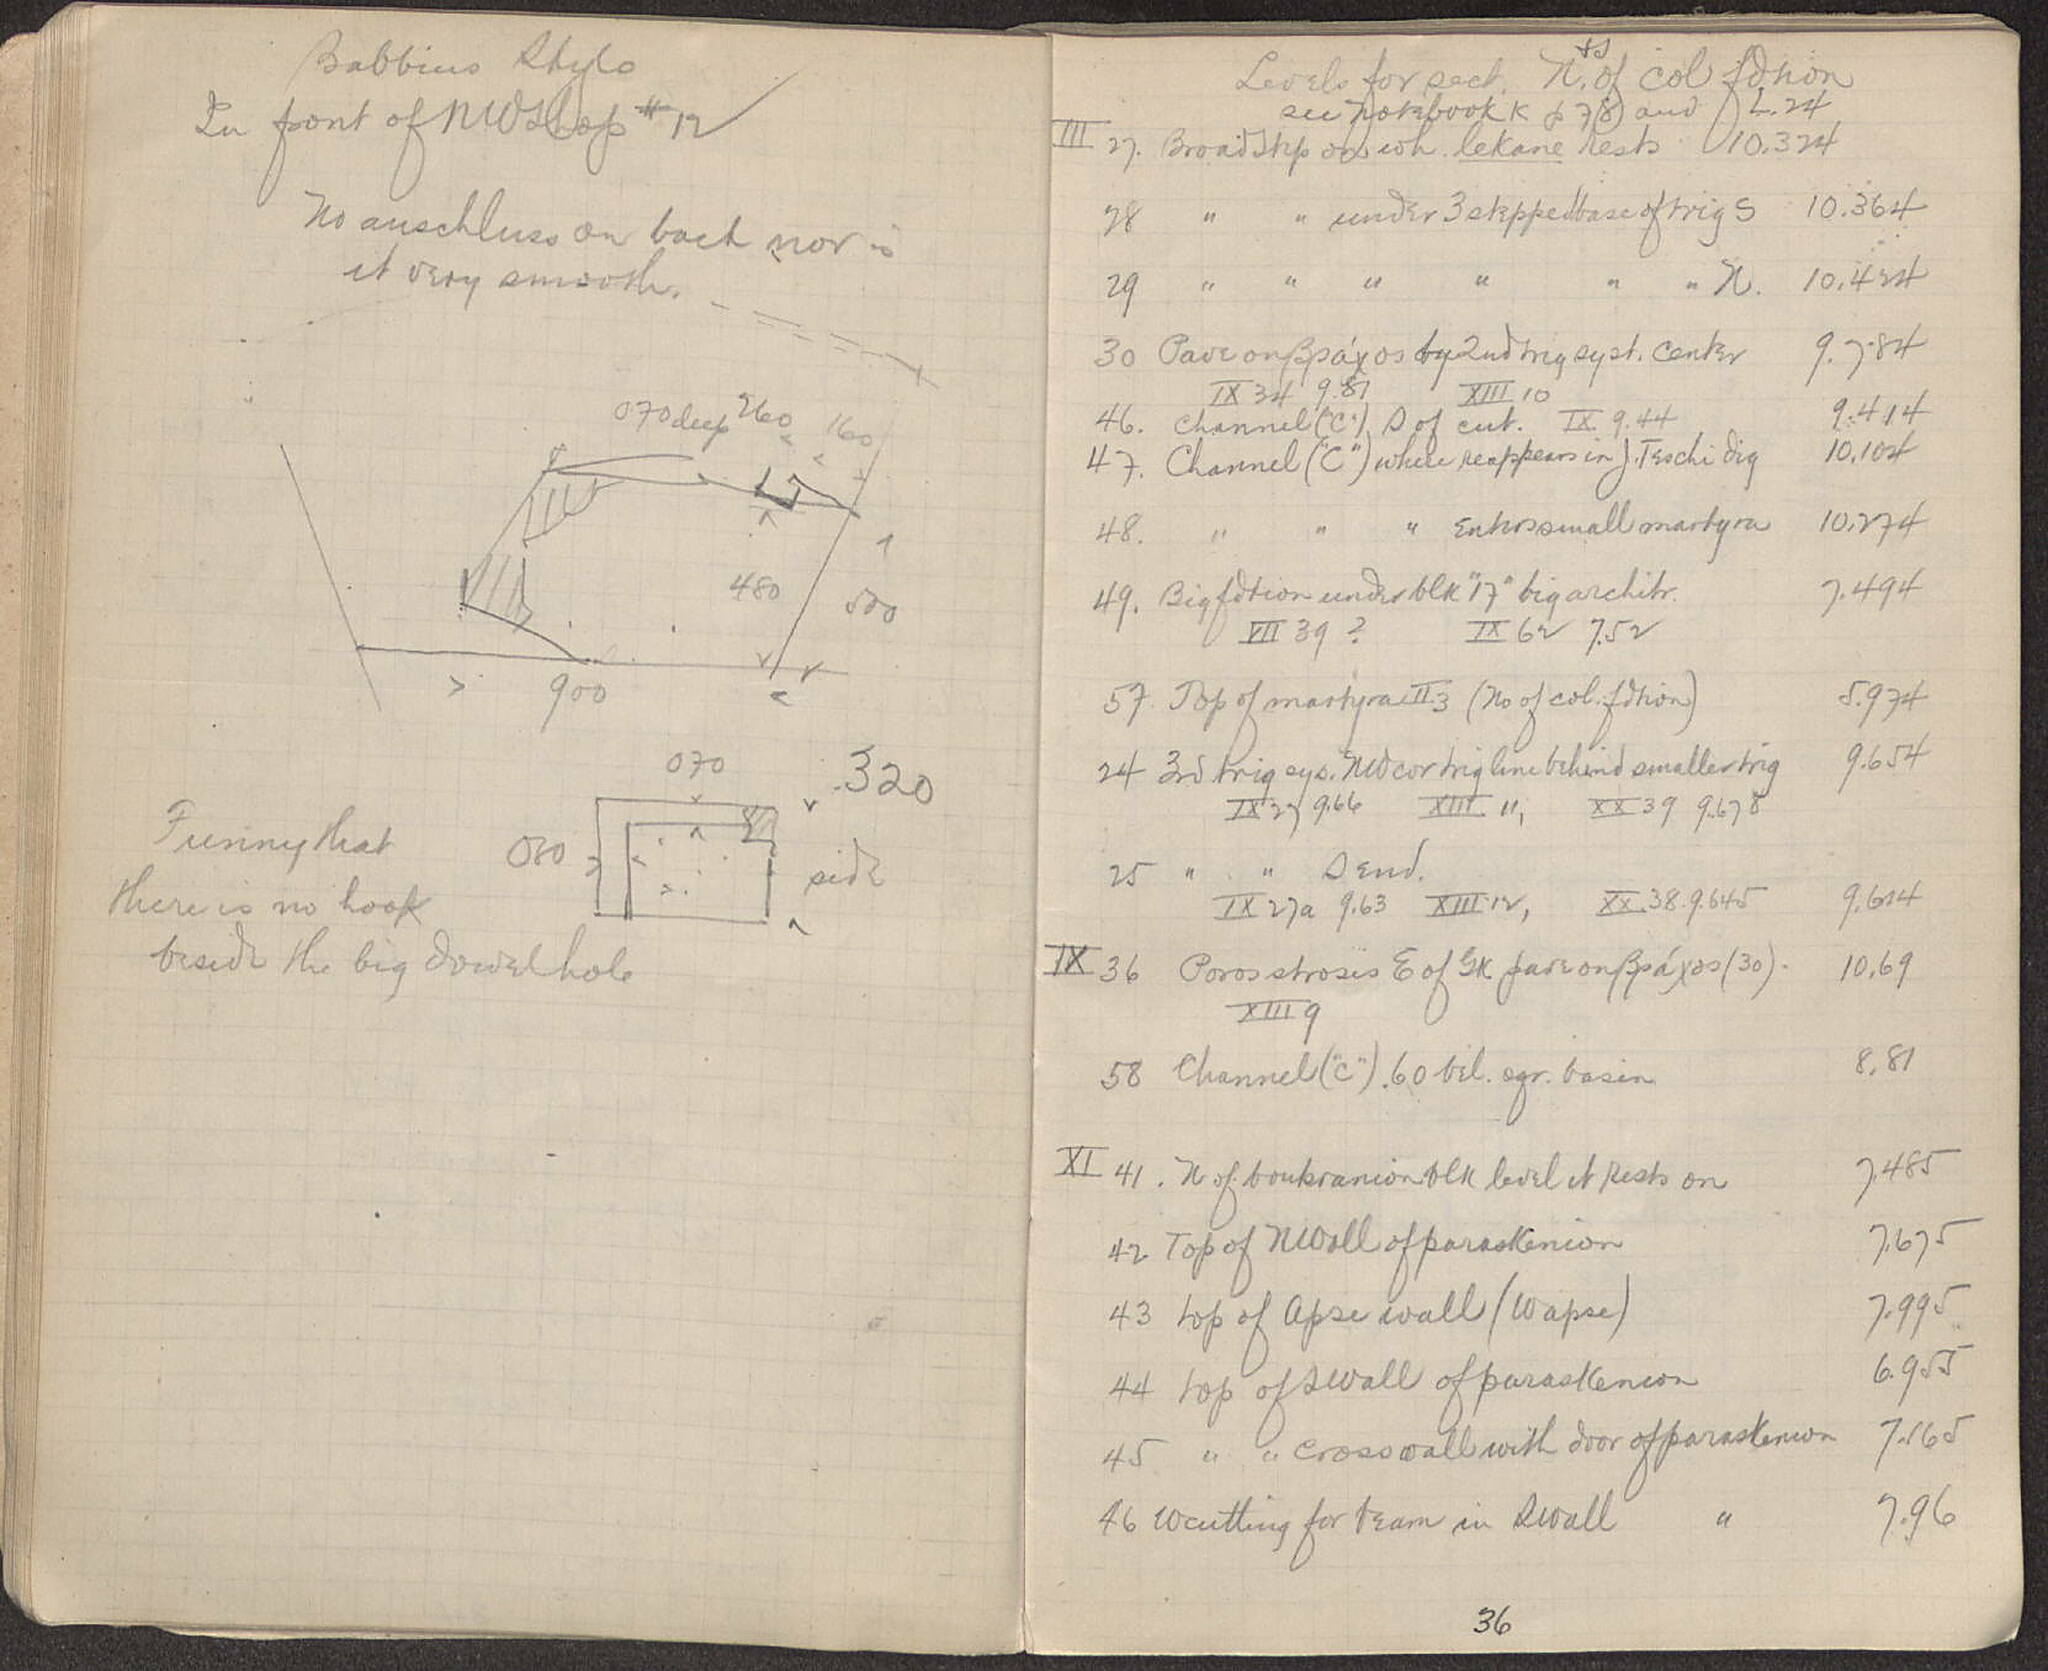 Babbius Stylo
In front of NW Shop #12
No anschluss on back nor is
it very smooth.
070 deep 260 160
480
500
900
070
.320
080
side
Funny that
there is no hook
beside the big dowel hole
Levels for sect. N. of col fdtion
+S
see Notebook K p 78 and L. 24
III 27. Broad step on wh. lekane rests 10.324
28 " " under 3 stepped base of trig S 10.364
29 " " " " " " N. 10.424
30 Pave on βράχος by 2nd trig syst. center 9.784
IX 34 9.81 XIII 10
46. Channel ("C") S of cut. IX 9.44 9.414
47. Channel ("C") where reappears in J. Teschi dig 10.104
48. " " " Enters small martyra 10.274
49. Big fdtion under blk "17" big archite. 7.494
VII 39 ? IX 62 7.52
57. Top of martyra II.3 (No of col. fdtion) 5.974
24 3rd trig sys. NW cor trig line behind smaller trig 9.654
IX 27 9.66 XIII 11, XX 39 9.678
25 " " S end.
IX 27a 9.63 XIII 12, XX.38.9.645 9.614
IX 36 Poros strosis E of Gk pave on βράχος (30). 10.69
XIII 9
58 Channel ("C") .60 bel. sqr. basin 8.81
XI 41. N of boukranion blk level it rests on 7.485
42 Top of N Wall of paraskenion 7.675
43 top of Apse wall (W apse) 7.995
44 top of S Wall of paraskenion 6.955
45 " " Cross wall with door of paraskenion 7.165
46 W cutting for beam in S Wall " 7.96
36